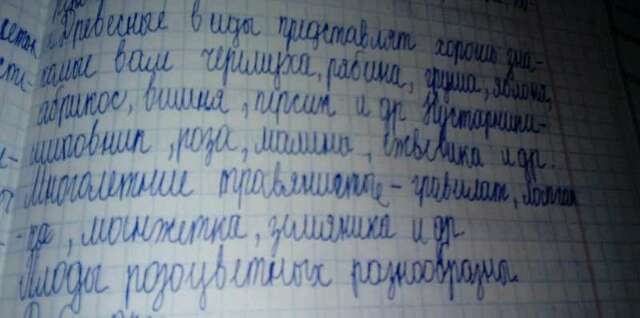 Древесные виды представлят хорошо зна-
комые вам черемуха, рябина, груша, яблоня,
абрикос, вишня, персик и др Кустарники-
шиповник, роза, малина, ежевика и др.
Многолетние травянистые - гравилат, лапчат
-ка, манжетка, земляника и др.
Плоды розоцветных разнообразны.